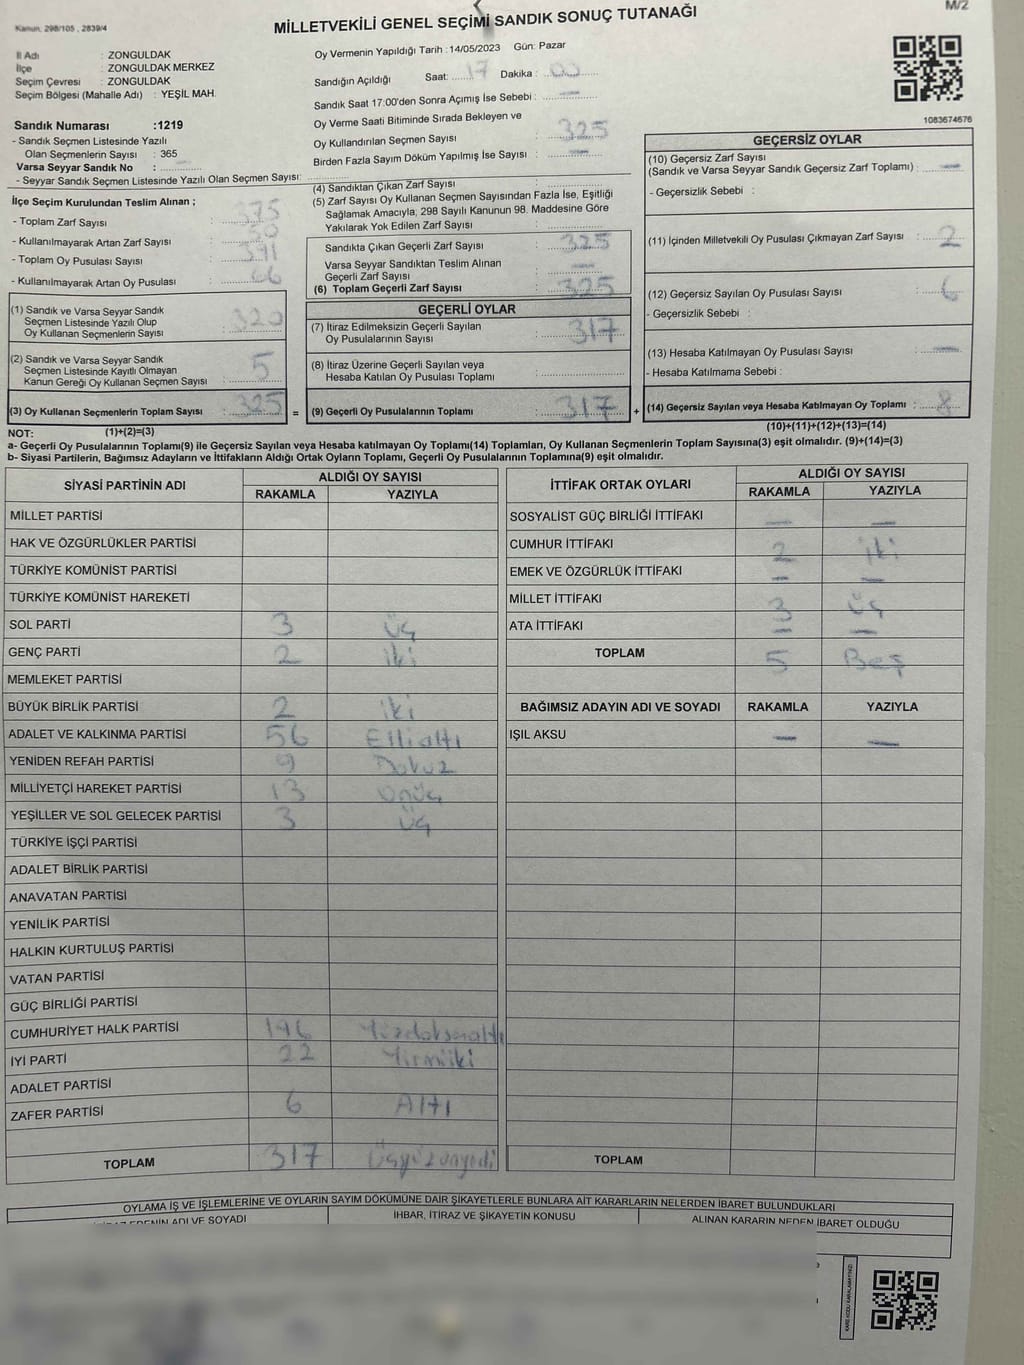 M/2
Kanun, 298/105 , 2839/4
MİLLETVEKİLİ GENEL SEÇİMİ SANDIK SONUÇ TUTANAĞI
İl Adı : ZONGULDAK
İlçe : ZONGULDAK MERKEZ
Seçim Çevresi : ZONGULDAK
Seçim Bölgesi (Mahalle Adı) : YEŞİL MAH.
Sandık Numarası :1219
- Sandık Seçmen Listesinde Yazılı
Olan Seçmenlerin Sayısı : 365
Varsa Seyyar Sandık No :
- Seyyar Sandık Seçmen Listesinde Yazılı Olan Seçmen Sayısı:
Oy Vermenin Yapıldığı Tarih : 14/05/2023 Gün: Pazar
Sandığın Açıldığı Saat: 17 Dakika : 00
Sandık Saat 17:00'den Sonra Açımış İse Sebebi : —
Oy Verme Saati Bitiminde Sırada Bekleyen ve
Oy Kullandırılan Seçmen Sayısı : 325
Birden Fazla Sayım Döküm Yapılmış İse Sayısı : —
1083674676
İlçe Seçim Kurulundan Teslim Alınan ;
- Toplam Zarf Sayısı : 375
- Kullanılmayarak Artan Zarf Sayısı : 50
- Toplam Oy Pusulası Sayısı : 391
- Kullanılmayarak Artan Oy Pusulası : 66
(1) Sandık ve Varsa Seyyar Sandık
Seçmen Listesinde Yazılı Olup
Oy Kullanan Seçmenlerin Sayısı : 320
(2) Sandık ve Varsa Seyyar Sandık
Seçmen Listesinde Kayıtlı Olmayan
Kanun Gereği Oy Kullanan Seçmen Sayısı : 5
(3) Oy Kullanan Seçmenlerin Toplam Sayısı : 325 =
(4) Sandıktan Çıkan Zarf Sayısı :
(5) Zarf Sayısı Oy Kullanan Seçmen Sayısından Fazla İse, Eşitliği
Sağlamak Amacıyla; 298 Sayılı Kanunun 98. Maddesine Göre
Yakılarak Yok Edilen Zarf Sayısı :
Sandıkta Çıkan Geçerli Zarf Sayısı : 325
Varsa Seyyar Sandıktan Teslim Alınan
Geçerli Zarf Sayısı : —
(6) Toplam Geçerli Zarf Sayısı : 325
GEÇERLİ OYLAR
(7) İtiraz Edilmeksizin Geçerli Sayılan
Oy Pusulalarının Sayısı : 317
(8) İtiraz Üzerine Geçerli Sayılan veya
Hesaba Katılan Oy Pusulası Toplamı :
(9) Geçerli Oy Pusulalarının Toplamı : 317 +
GEÇERSİZ OYLAR
(10) Geçersiz Zarf Sayısı
(Sandık ve Varsa Seyyar Sandık Geçersiz Zarf Toplamı) : —
- Geçersizlik Sebebi :
(11) İçinden Milletvekili Oy Pusulası Çıkmayan Zarf Sayısı : 2
(12) Geçersiz Sayılan Oy Pusulası Sayısı : 6
- Geçersizlik Sebebi :
(13) Hesaba Katılmayan Oy Pusulası Sayısı : —
- Hesaba Katılmama Sebebi :
(14) Geçersiz Sayılan veya Hesaba Katılmayan Oy Toplamı : 8
NOT: (1)+(2)=(3) (10)+(11)+(12)+(13)=(14)
a- Geçerli Oy Pusulalarının Toplamı(9) ile Geçersiz Sayılan veya Hesaba katılmayan Oy Toplamı(14) Toplamları, Oy Kullanan Seçmenlerin Toplam Sayısına(3) eşit olmalıdır. (9)+(14)=(3)
b- Siyasi Partilerin, Bağımsız Adayların ve İttifakların Aldığı Ortak Oyların Toplamı, Geçerli Oy Pusulalarının Toplamına(9) eşit olmalıdır.
SİYASİ PARTİNİN ADI ALDIĞI OY SAYISI
RAKAMLA YAZIYLA
MİLLET PARTİSİ
HAK VE ÖZGÜRLÜKLER PARTİSİ
TÜRKİYE KOMÜNİST PARTİSİ
TÜRKİYE KOMÜNİST HAREKETİ
SOL PARTİ 3 Üç
GENÇ PARTİ 2 iki
MEMLEKET PARTİSİ
BÜYÜK BİRLİK PARTİSİ 2 iki
ADALET VE KALKINMA PARTİSİ 56 Ellialtı
YENİDEN REFAH PARTİSİ 9 Dokuz
MİLLİYETÇİ HAREKET PARTİSİ 13 Onüç
YEŞİLLER VE SOL GELECEK PARTİSİ 3 Üç
TÜRKİYE İŞÇİ PARTİSİ
ADALET BİRLİK PARTİSİ
ANAVATAN PARTİSİ
YENİLİK PARTİSİ
HALKIN KURTULUŞ PARTİSİ
VATAN PARTİSİ
GÜÇ BİRLİĞİ PARTİSİ
CUMHURİYET HALK PARTİSİ 196 Yüzdoksanaltı
İYİ PARTİ 22 Yirmiiki
ADALET PARTİSİ
ZAFER PARTİSİ 6 Altı
TOPLAM 317 Üçyüzonyedi
İTTİFAK ORTAK OYLARI ALDIĞI OY SAYISI
RAKAMLA YAZIYLA
SOSYALİST GÜÇ BİRLİĞİ İTTİFAKI — —
CUMHUR İTTİFAKI 2 iki
EMEK VE ÖZGÜRLÜK İTTİFAKI — —
MİLLET İTTİFAKI 3 Üç
ATA İTTİFAKI — —
TOPLAM 5 Beş
BAĞIMSIZ ADAYIN ADI VE SOYADI RAKAMLA YAZIYLA
IŞIL AKSU — —
TOPLAM
OYLAMA İŞ VE İŞLEMLERİNE VE OYLARIN SAYIM DÖKÜMÜNE DAİR ŞİKAYETLERLE BUNLARA AİT KARARLARIN NELERDEN İBARET BULUNDUKLARI
ADI VE SOYADI İHBAR, İTİRAZ VE ŞİKAYETİN KONUSU ALINAN KARARIN NEDEN İBARET OLDUĞU
KARE KODU KARALAMAYINIZ!